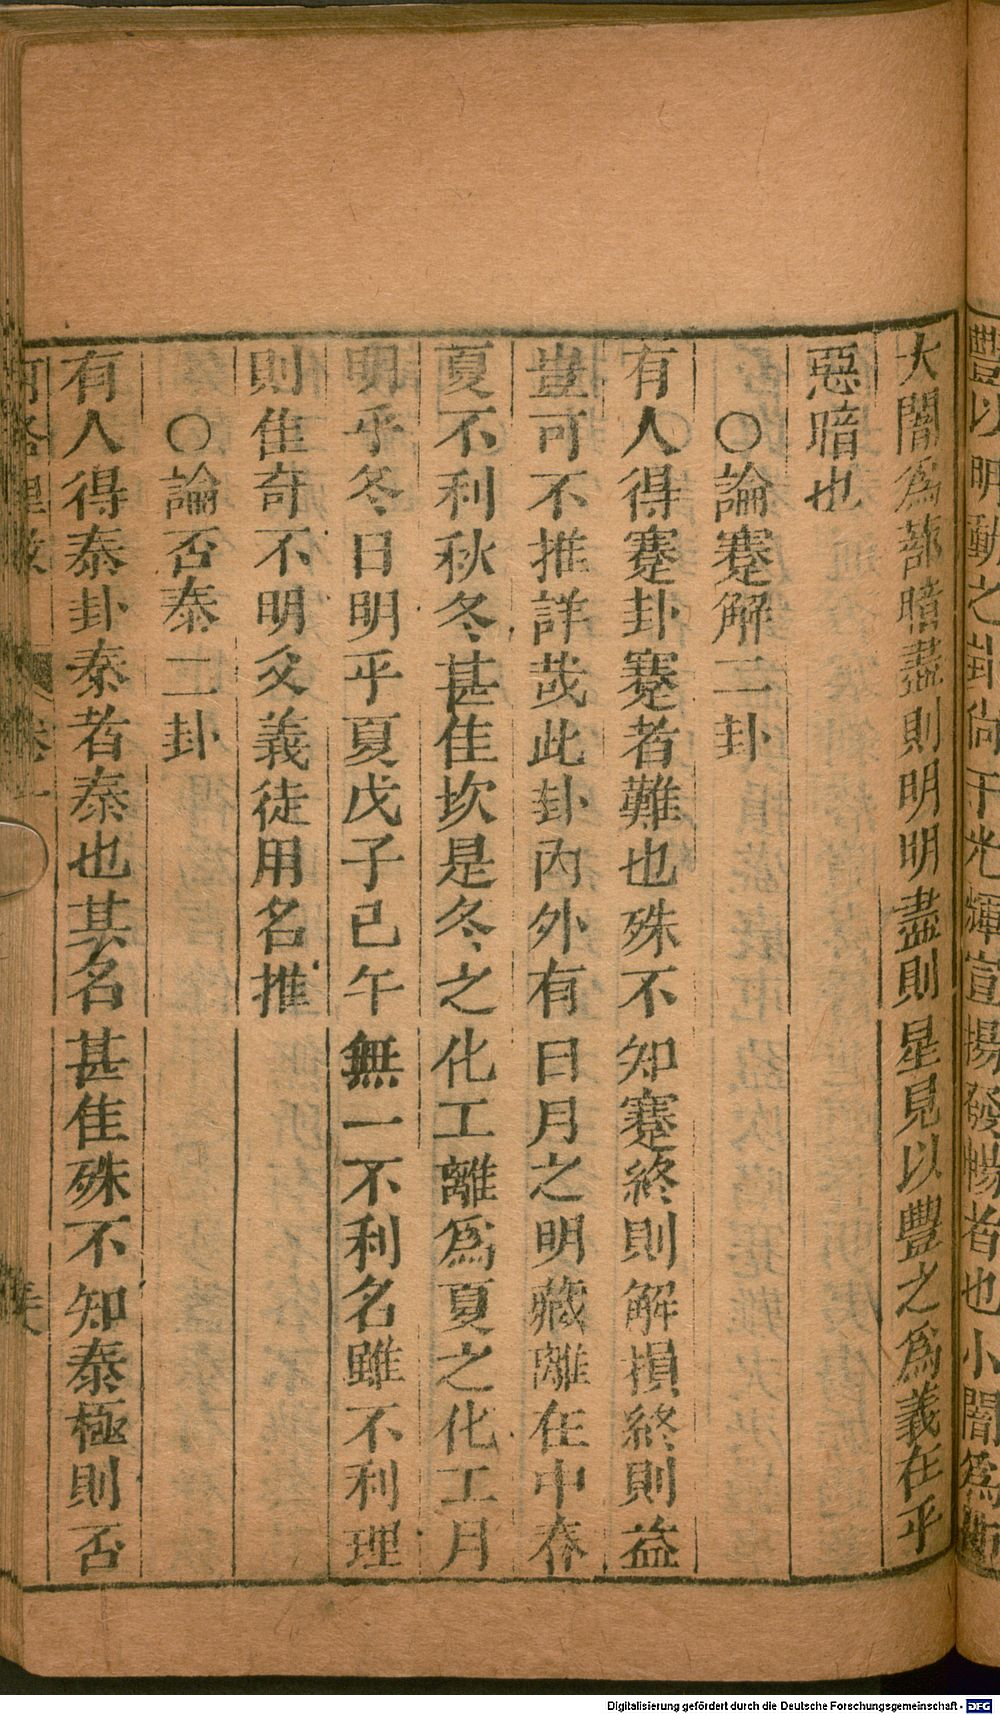 豐以明動之卦尚于光輝宣揚發暢者也小闇爲
大闇爲蔀暗盡則明明盡則星見以豐之爲義在乎
惡暗也
○論蹇解二卦
有人得蹇卦蹇者難也殊不知蹇終則解損終則益
豈可不推詳哉此卦內外有日月之明藏離在中春
夏不利秋冬甚佳坎是冬之化工離爲夏之化工月
明乎冬日明乎夏戊子己午無一不利名雖不利理
則隹奇不明爻義徒用名推
○論否泰二卦
有人得泰卦泰者泰也其名甚隹殊不知泰極則否
卷
Digitalisierung gefördert durch die Deutsche Forschungsgemeinschaft - DFG